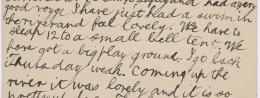 good voyge I have just had a swim in
the river and fal lovely. We have to
sleap 12 to a small bell tent. We
have got a big play ground. I go back
thursday weak. Coming up the
river it was lovely and it is so